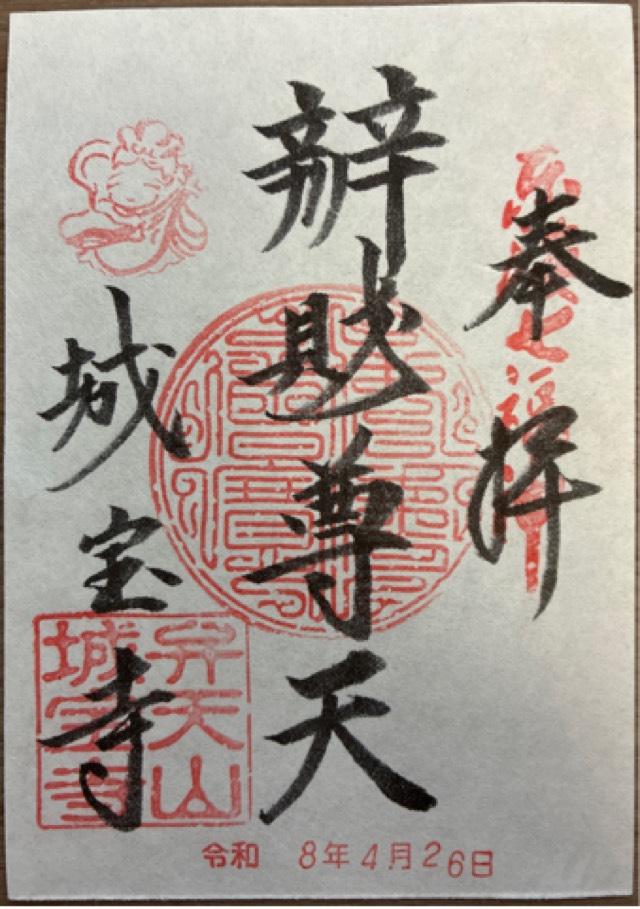 奉拝
辨財尊天
城宝寺
弁天山
城宝寺
令和 8年4月26日